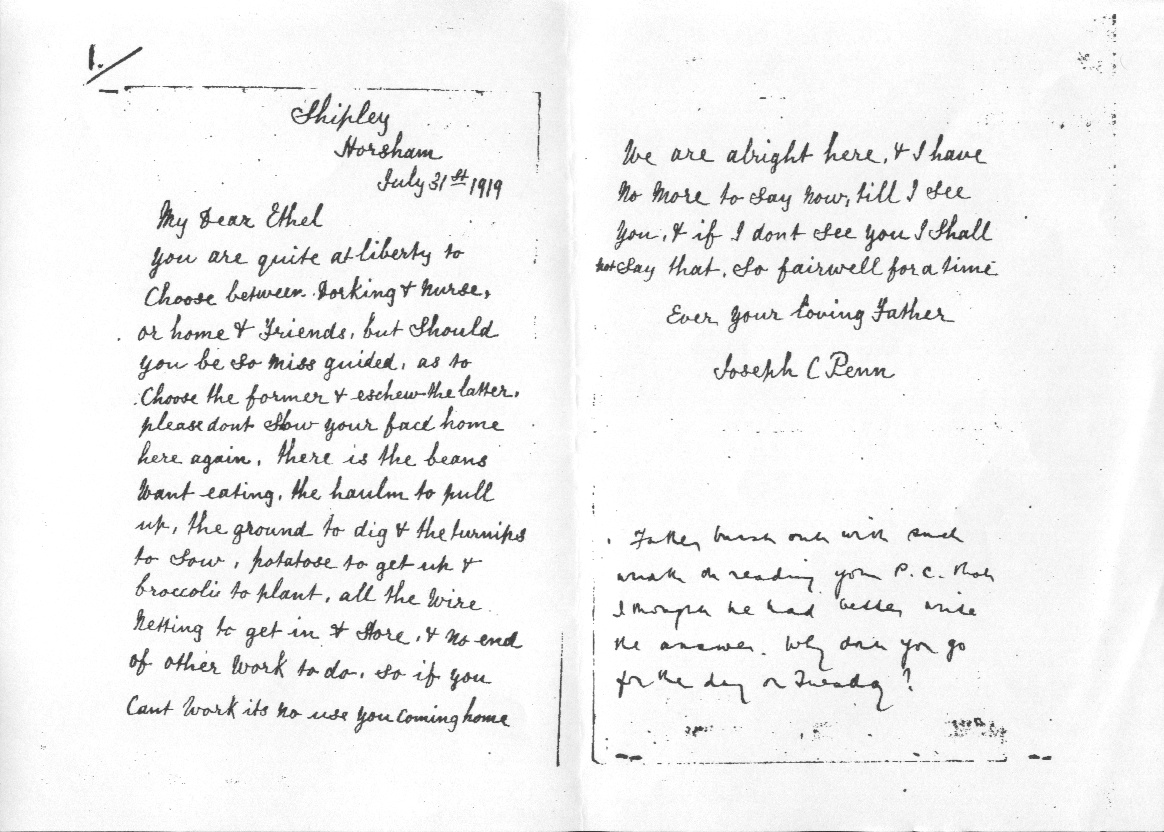 1./
Shipley
Horsham
July 31st 1919
My Dear Ethel
you are quite at liberty to
Choose between Dorking & Nurse,
or home & Friends, but Should
you be so miss guided, as to
Choose the former & eschew the latter,
please dont Show your face home
here again, there is the beans
Want eating, the haulm to pull
up, the ground to dig & the turnips
to Sow, potatose to get up &
broccolie to plant, all the Wire
Netting to get in & Store, & no end
of other Work to do, so if you
Cant Work its no use you Coming home
We are alright here, & I have
No More to Say now, till I See
You, & if I dont See you I Shall
not Say that, So fairwell for a time
Ever your loving Father
Joseph C Penn
Father burst out with such
wrath on reading your P.C. that
I thought he had better write
the answer. Why dont you go
for the day on Tuesday?